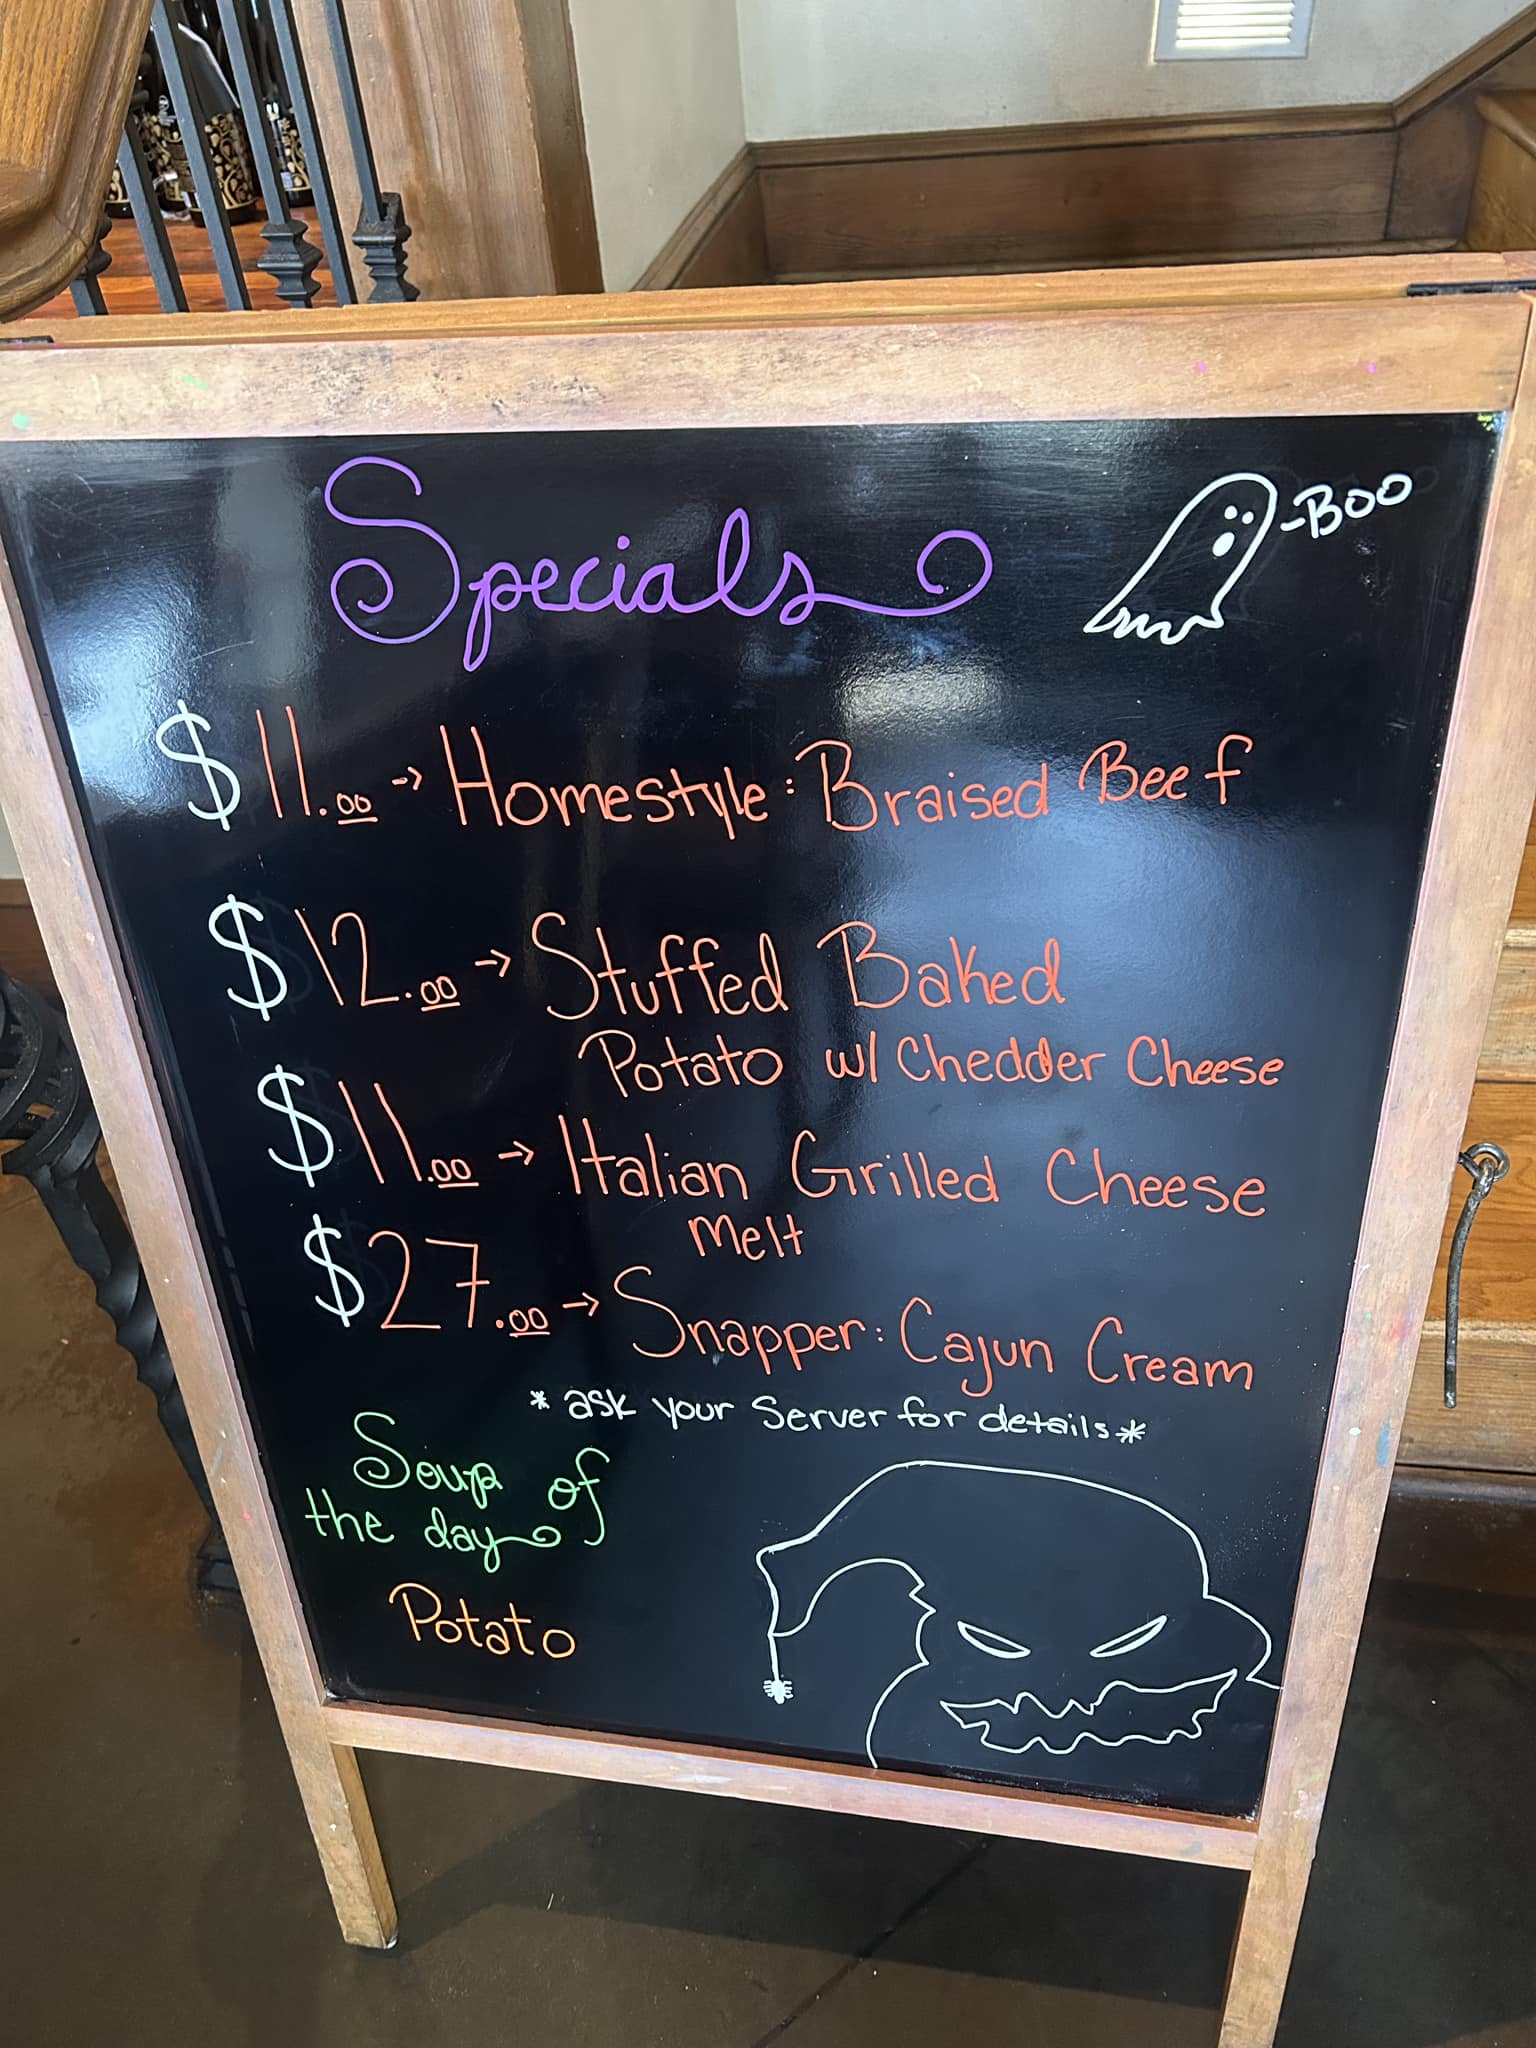 Specials
-Boo
$11.00 → Homestyle: Braised Beef
$12.00 → Stuffed Baked
Potato w/ Chedder Cheese
$11.00 → Italian Grilled Cheese
Melt
$27.00 → Snapper: Cajun Cream
* ask your Server for details *
Soup of
the day
Potato